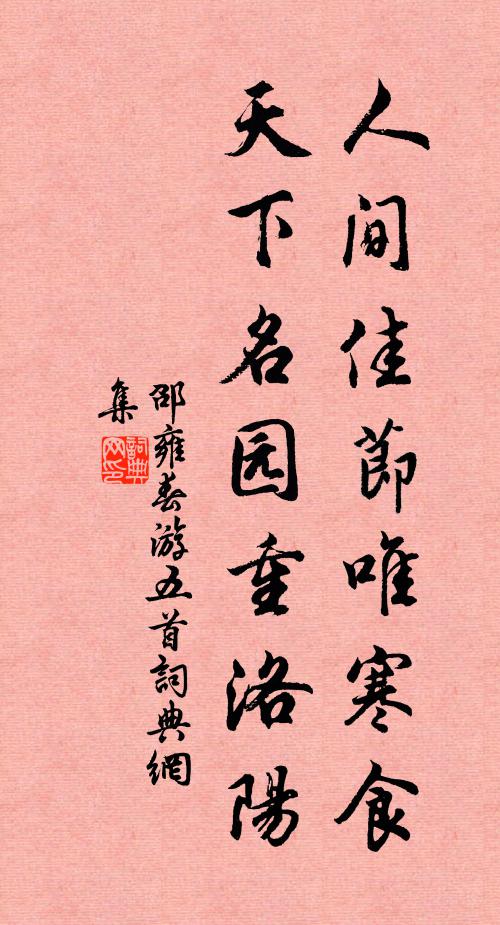 人间佳節唯寒食
天下名园重洛陽
邵雍春游五首詞典網
集
詞典网印